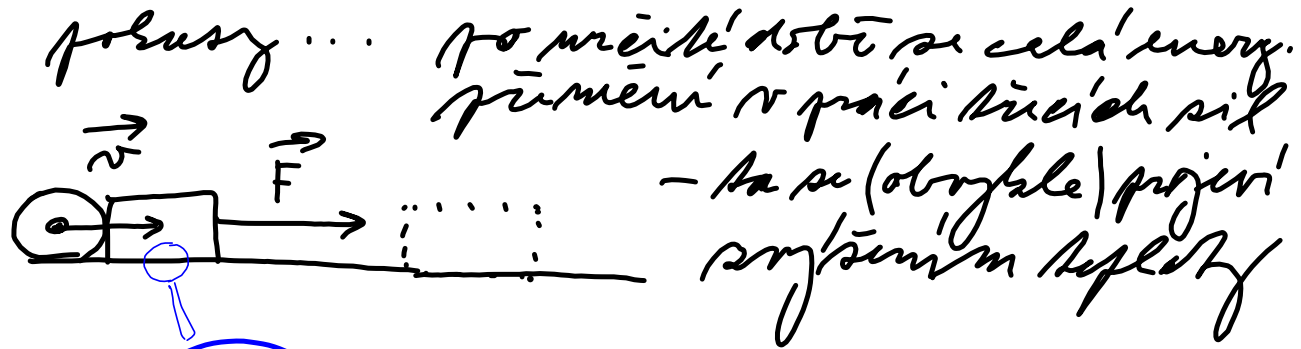 pokusy ... po určité době se celá energ.
přemění v práci třecích sil
v F
– ta se (obvykle) projeví
zvýšením teploty